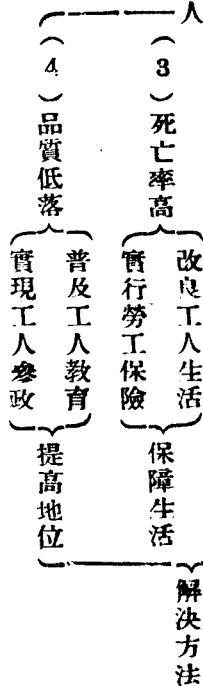 人
（3）死亡率高
改良工人生活
實行勞工保險
保障生活
（4）品質低落
普及工人教育
實現工人參政
提高地位
解決方法